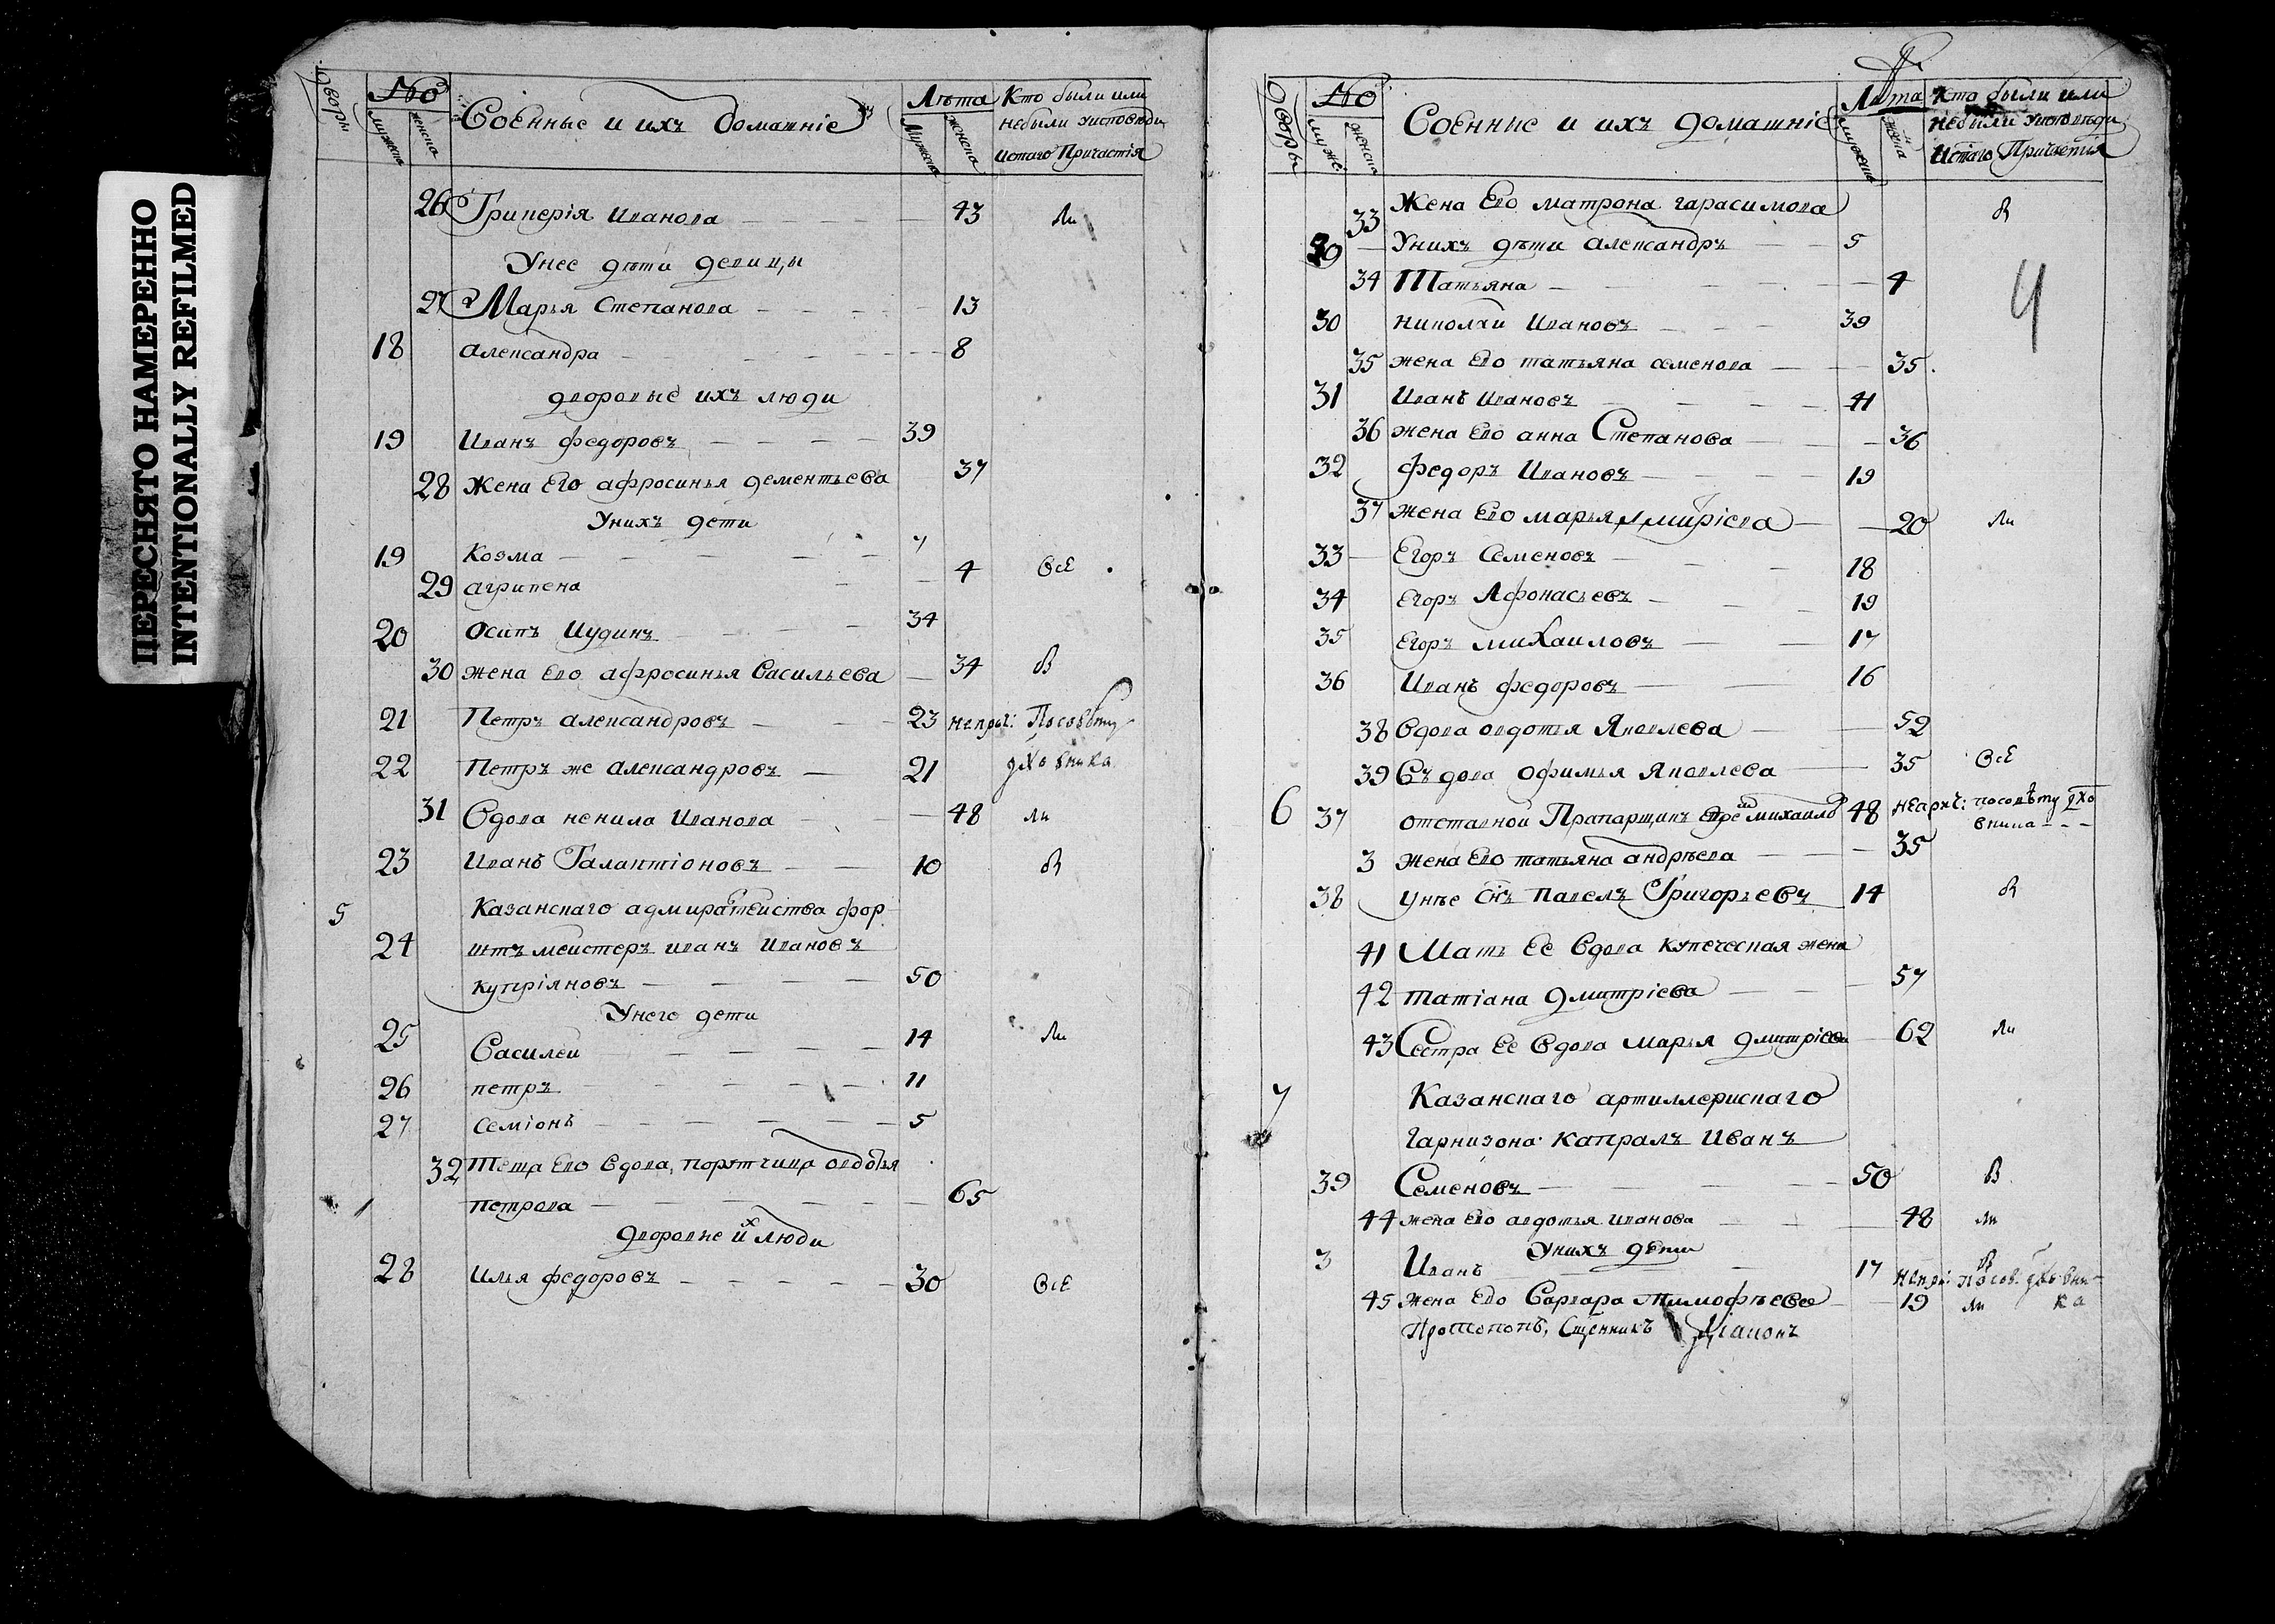 ПЕРЕСНЯТО НАМЕРЕННО
INTENTIONALLY REFILMED
Дворы № Военные и ихъ домашніе Лѣта Кто были или
мужеска женска мужеска женска небыли уисповѣди
истаго Причастія
26 Иванова 43 Ли
Унее дѣти девицы
27 Марья Степанова 13
18 александра 8
дворовые ихъ люди
19 Иванъ федоровъ 39
28 Жена Его афросинья дементьева 37
Унихъ дети
19 Козма 7
29 агрипена 4 Всѣ
20 Осипъ Иудинъ 34
30 жена Ево афросинья Васильева 34 В
21 Петръ александровъ 23 непрі: Посовѣту
22 Петръ же александровъ 21 дховника
31 Вдова ненила Иванова 48 ли
23 Иванъ Галактіоновъ 10 В
5 Казанскаго адмиралтеиства фор
24 штъмеистеръ иванъ Ивановъ
купріяновъ 50
Унего дети
25 Василеи 14 Ли
26 петръ 11
27 Семіонъ 5
32 Теща Ево Вдова, порутчица овдотья
петрова 65
дворовые их люди
28 Илья федоровъ 30 Всѣ
Дворы № Военные и ихъ домашніе Лѣта Кто были или
муже женска мужеска жена небыли уисповѣди
Истаго Причастія
33 Жена Ево матрона гарасимова В
29 Унихъ дѣти александръ 5
34 Татьяна 4
4
30 николаи Ивановъ 39
35 жена Ево татьяна семенова 35
31 Иванъ Ивановъ 41
36 жена Ево анна Степанова 36
32 федоръ Ивановъ 19
37 жена Ево марья дмитріева 20 Ли
33 Егоръ Семеновъ 18
34 Егоръ Афонасьевъ 19
35 Егоръ михаиловъ 17
36 Иванъ федоровъ 16
38 Вдова овдотья Яковлева 52
39 Въдова офимья Яковлева 35 Всѣ
6 37 отставнои Прапарщикъ михаилов 48 непрі: посовѣту дхо
вника
3 Жена Ево татьяна андрѣева 35
38 Унѣе Снъ павелъ Григорьевъ 14 В
41 Мать Ее Вдова купеческая жена
42 татіана дмитріева 57
43 Сестра Ее Вдова марья дмитріева 62 Ли
7 Казанскаго артиллерискаго
гарнизона капралъ Иванъ
39 Семеновъ 50 В
44 жена Ево авдотья иванова 48 ли
Унихъ дѣти
3 Иванъ 17 В непрі: Посов. дховни
45 Жена Ево Варвара тимофѣева 19 ли ка
Протопопъ, Сщенникъ